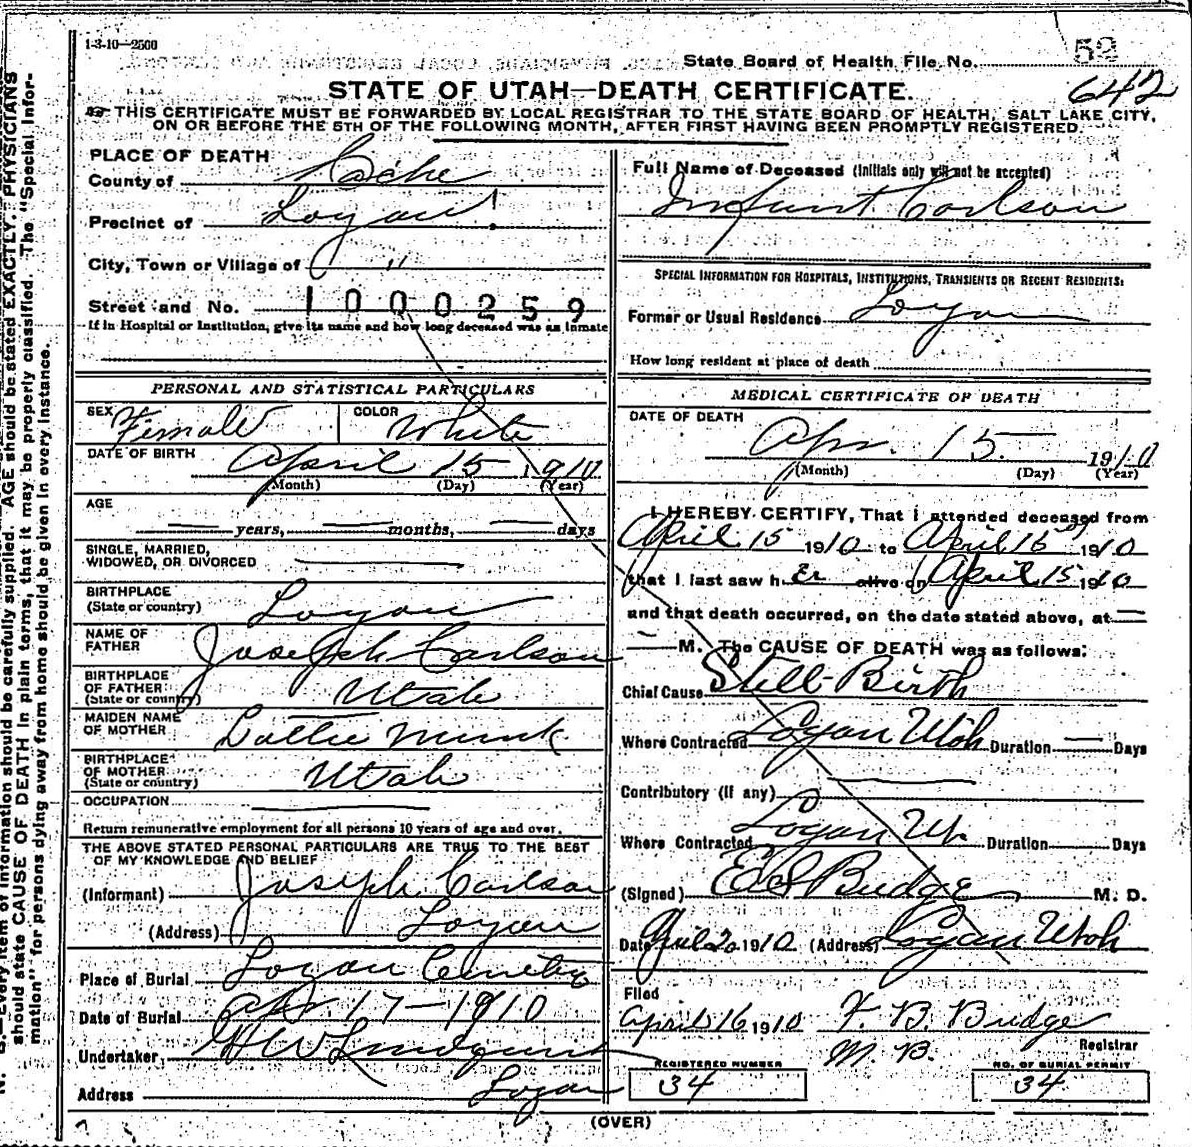 1-3-10—2500
State Board of Health File No. 52
642
STATE OF UTAH—DEATH CERTIFICATE.
THIS CERTIFICATE MUST BE FORWARDED BY LOCAL REGISTRAR TO THE STATE BOARD OF HEALTH, SALT LAKE CITY,
ON OR BEFORE THE 5TH OF THE FOLLOWING MONTH, AFTER FIRST HAVING BEEN PROMPTLY REGISTERED.
PLACE OF DEATH
County of Cache
Precinct of Logan
City, Town or Village of "
Street and No. 1000259
If in Hospital or Institution, give its name and how long deceased was an inmate
Full Name of Deceased (Initials only will not be accepted)
Infant Carlson
SPECIAL INFORMATION FOR HOSPITALS, INSTITUTIONS, TRANSIENTS OR RECENT RESIDENTS:
Former or Usual Residence Logan
How long resident at place of death
PERSONAL AND STATISTICAL PARTICULARS
SEX Female COLOR White
DATE OF BIRTH April 15 1910
(Month) (Day) (Year)
AGE
— years, — months, — days
SINGLE, MARRIED,
WIDOWED, OR DIVORCED —
BIRTHPLACE
(State or country) Logan
NAME OF
FATHER Joseph Carlson
BIRTHPLACE
OF FATHER
(State or country) Utah
MAIDEN NAME
OF MOTHER Lottie Munk
BIRTHPLACE
OF MOTHER
(State or country) Utah
OCCUPATION —
Return remunerative employment for all persons 10 years of age and over.
THE ABOVE STATED PERSONAL PARTICULARS ARE TRUE TO THE BEST
OF MY KNOWLEDGE AND BELIEF
(Informant) Joseph Carlson
(Address) Logan
Place of Burial Logan Cemetery
Date of Burial Apr. 17—1910
Undertaker, Lindquist
Address Logan
MEDICAL CERTIFICATE OF DEATH
DATE OF DEATH
Apr. 15 1910
(Month) (Day) (Year)
I HEREBY CERTIFY, That I attended deceased from
April 15 1910 to April 15 1910
that I last saw her alive on April 15 1910
and that death occurred, on the date stated above, at —
— M. The CAUSE OF DEATH was as follows:
Chief Cause Still-Birth
Where Contracted Logan Utah Duration — Days
Contributory (if any) —
Where Contracted Logan Ut. Duration Days
(Signed) Budge M. D.
Date April 20 1910 (Address) Logan Utah
Filed
April 16 1910 F. B. Budge
M. B. Registrar
REGISTERED NUMBER
34
NO. OF BURIAL PERMIT
34
(OVER)
Every item of information should be carefully supplied. AGE should be stated EXACTLY. PHYSICIANS
should state CAUSE OF DEATH in plain terms, that it may be properly classified. The "Special Infor-
mation" for persons dying away from home should be given in every instance.